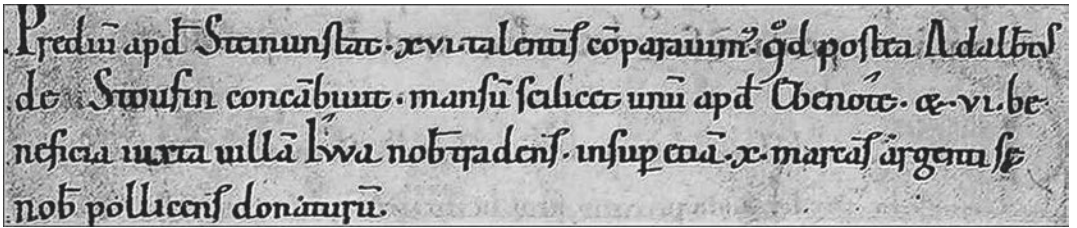 Prediū apđ Steinunſtat · xvi · talentiſ cōparauim᷒ · qͦd poſtea Adalƀtuſ
de Stoufin concābiuit · manſū ſcilicet unū apđ Ebenote · & · vi · be
neficia iuxta uillā Iwa noƀ tradenſ · inſup etiā · x · marcaſ argenti ſe
noƀ pollicenſ donaturū ·